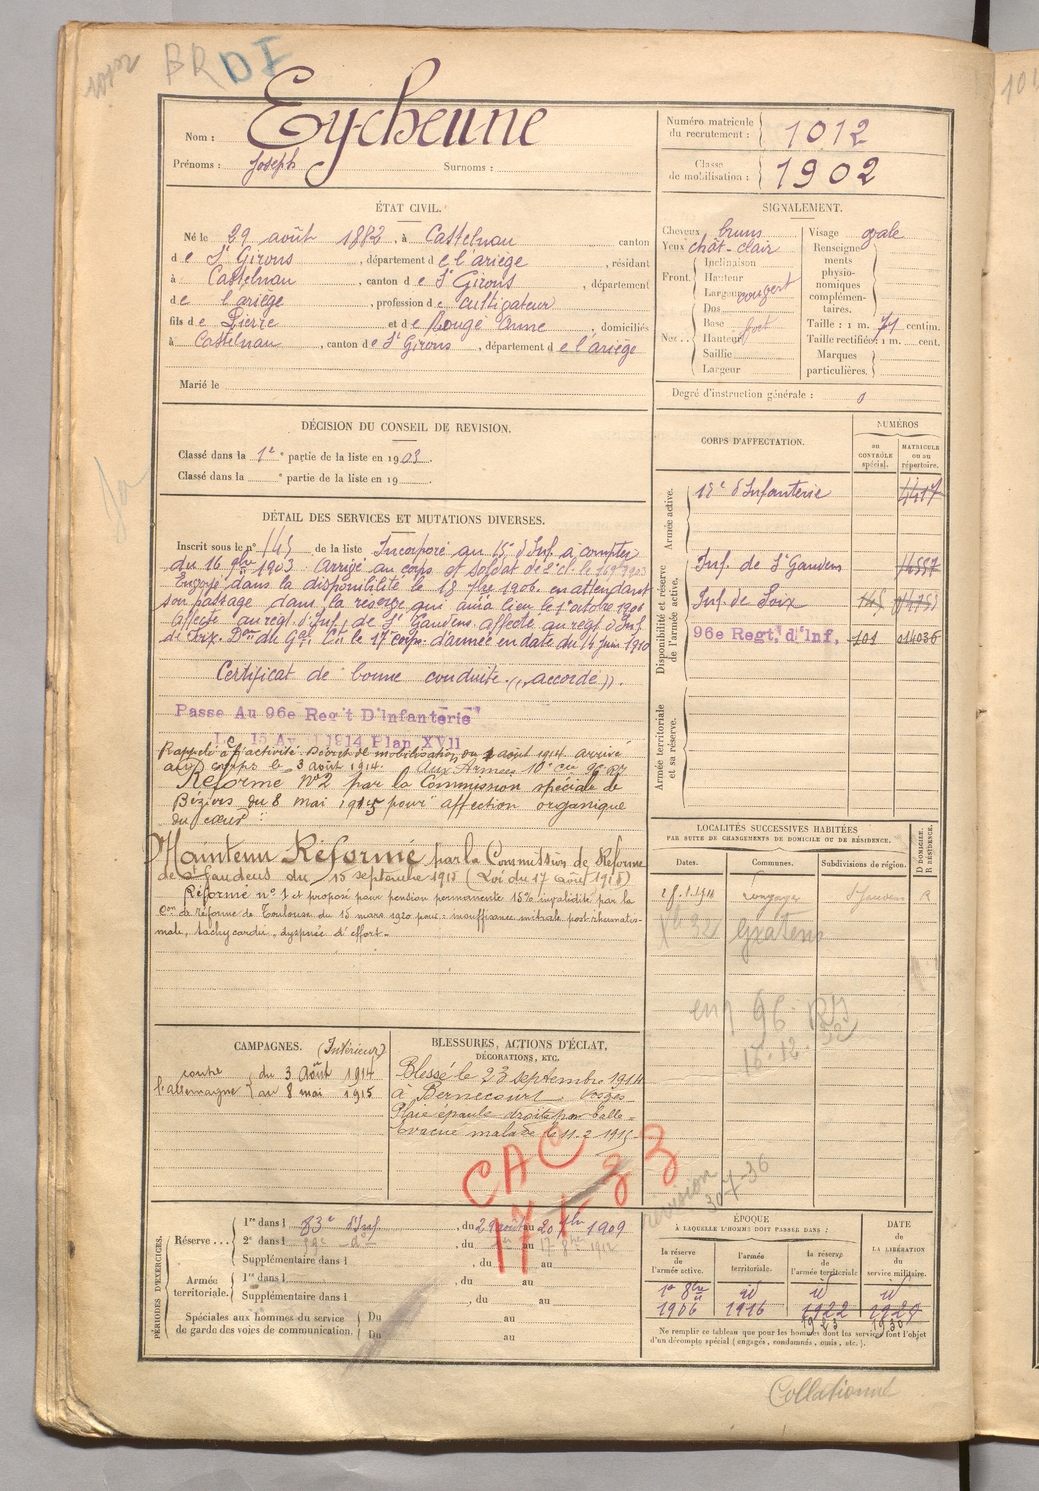 BRDI
Nom : Eychenne
Prénoms : Joseph Surnoms :
Numéro matricule du recrutement : 1012
Classe de mobilisation : 1902
ÉTAT CIVIL.
Né le 29 août 1882, à Castelnau canton
de St Girons, département de l'ariège, résidant
à Castelnau, canton de St Girons, département
de l'ariège, profession de cultivateur
fils de Pierre et de Rougé Anne, domiciliés
à Castelnau, canton de St Girons, département de l'ariège
Marié le
SIGNALEMENT.
Cheveux bruns
Yeux chât-clair
Front. Inclinaison
Hauteur
Largeur
Nez... Dos
Base fort
Hauteur
Saillie
Largeur
Visage ovale
Renseignements physionomiques complémentaires.
Taille : 1 m. 71 centim.
Taille rectifiée: 1 m. cent.
Marques particulières.
Degré d'instruction générale :
DÉCISION DU CONSEIL DE REVISION.
Classé dans la 1e partie de la liste en 1903.
Classé dans la partie de la liste en 19
DÉTAIL DES SERVICES ET MUTATIONS DIVERSES.
Inscrit sous le n° 145 de la liste Incorporé au 15e d'Inf. à compter
du 16 9bre 1903 arrivé au corps et soldat de 2e cl. le
Envoyé dans la disponibilité le 18 7bre 1906 en attendant
son passage dans la réserve qui aura lieu le 1er octobre 1906
affecté au regt d'Inf. de St Gaudens affecté au regt d'Inf
de Foix. Don du Gal Ct le 17e corps d'armée en date du 14 juin 1910
Certificat de bonne conduite "accordé".
Passe Au 96e Reg't D'Infanterie
Le 15 Avril 1914 Plan XVII
Rappelé à l'activité. Décret de mobilisation du 1 août 1914. arrivé
au corps le 3 août 1914. Aux Armées 10e cie 96 RI
Réformé N°2 par la Commission spéciale de
Béziers du 8 mai 1915 pour affection organique
du cœur
Maintenu Réformé par la Commission de Réforme
de St Gaudens du 15 septembre 1915 (Loi du 17 août 1915)
Réformé n° 1 et proposé pour pension permanente 15% invalidité par la
Con de réforme de Toulouse du 15 mars 1920 pour : insuffisance mitrale post-rhumatis-
male, tachycardie, dyspnée d'effort.
CORPS D'AFFECTATION.
NUMÉROS
au CONTRÔLE spécial.
MATRICULE ou au répertoire.
Armée active.
15e d'Infanterie 4417
Disponibilité et réserve de l'armée active.
Inf. de St Gaudens 14557
Inf. de Foix 145
96e Regt. d'Inf. 101 014036
Armée territoriale et sa réserve.
LOCALITÉS SUCCESSIVES HABITÉES
PAR SUITE DE CHANGEMENTS DE DOMICILE OU DE RÉSIDENCE.
Dates. Communes. Subdivisions de région. D. DOMICILE. R. RÉSIDENCE.
Longages St Gaudens R
Gratens
96 RI
18.12.32
CAMPAGNES. (Intérieur)
contre l'allemagne du 3 Août 1914
au 8 mai 1915
BLESSURES, ACTIONS D'ÉCLAT,
DÉCORATIONS, ETC.
Blessé le 23 septembre 1914
à Bernecourt Vosges
Plaie épaule droite par balle
Evacué malade le 11-2 1915
CAC
révision
30-7-36
PÉRIODES D'EXERCICES.
Réserve... 1re dans l 83e d'Inf , du 29 août au 20 7bre 1909
2e dans l , du au 17 8bre 1912
Supplémentaire dans l , du au
Armée territoriale. 1re dans l , du au
Supplémentaire dans l , du au
Spéciales aux hommes du service de garde des voies de communication. Du au
Du au
ÉPOQUE
À LAQUELLE L'HOMME DOIT PASSER DANS :
la réserve de l'armée active. l'armée territoriale. la réserve de l'armée territoriale
DATE DE LA LIBÉRATION du service militaire.
1er 8bre id id id
1906 1916 1922 1929
1923 1930
Ne remplir ce tableau que pour les hommes dont les services font l'objet
d'un décompte spécial (engagés, condamnés, omis, etc.).
Collationné